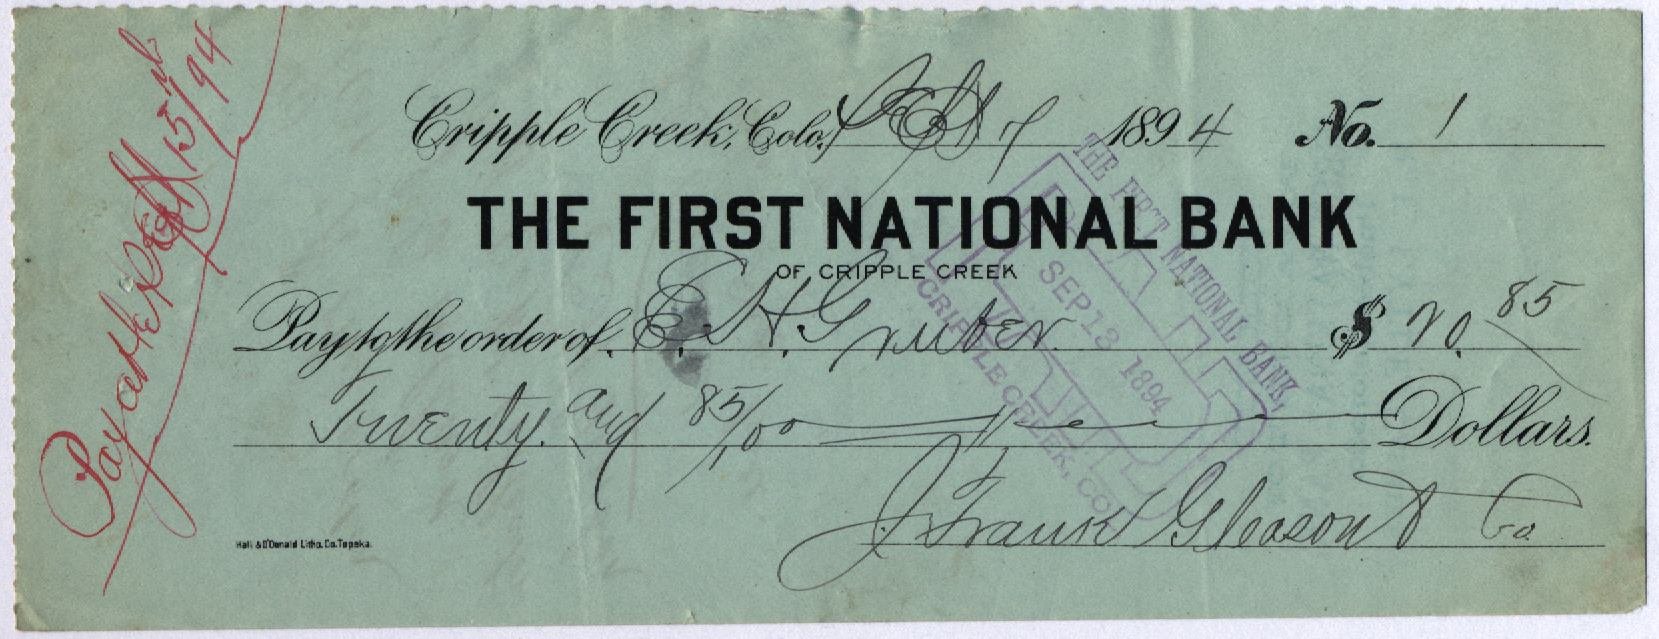 Cripple Creek, Colo., Sept 7 1894 No. 1
THE FIRST NATIONAL BANK
OF CRIPPLE CREEK
Pay to the order of E. H. Gruber. $ 20.85
Twenty. and 85/100 Dollars.
J Frank Gleason & Co
Hall & O'Donald Litho. Co. Topeka.
Pay after Sept 15th/94
THE FIRST NATIONAL BANK,
PAID
SEP 13 1894
CRIPPLE CREEK, COL.